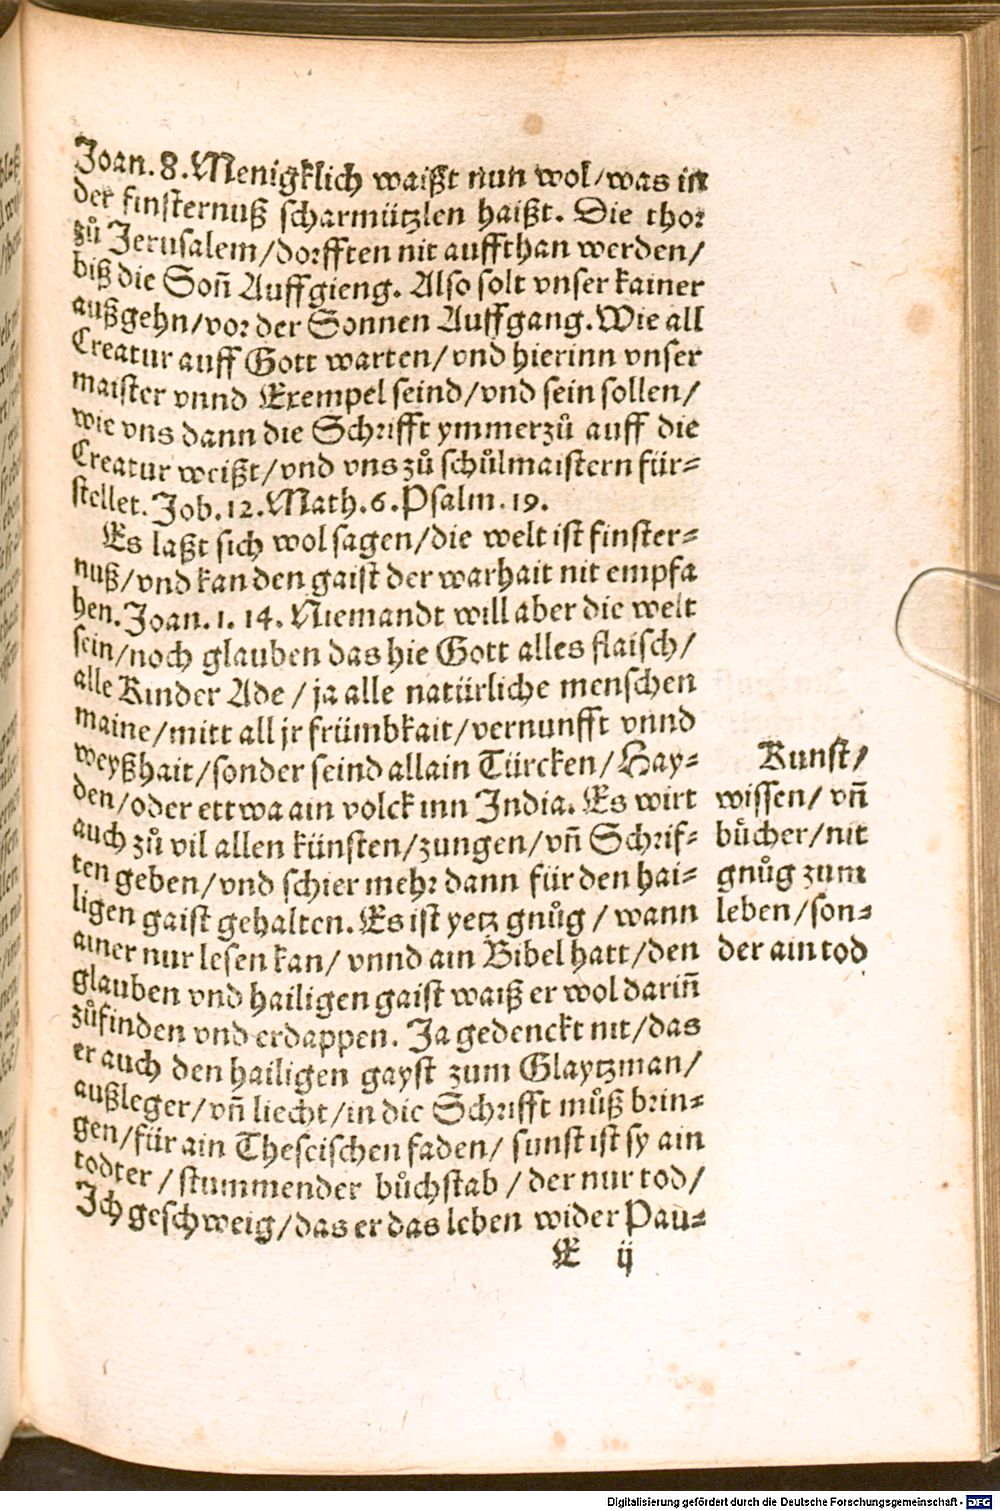 Joan. 8. Menigklich waißt nun wol/was in
der finsternuß scharmützlen haißt. Die thor
zů Jerusalem/dorfften nit auffthan werden/
biß die Soñ Auffgieng. Also solt vnser kainer
außgehn/vor der Sonnen Auffgang. Wie all
Creatur auff Gott warten/vnd hierinn vnser
maister vnnd Exempel seind/vnd sein sollen/
wie vns dann die Schrifft ymmerzů auff die
Creatur weißt/vnd vns zů schůlmaistern für-
stellet. Job. 12. Math. 6. Psalm. 19.
Es laßt sich wol sagen/die welt ist finster-
nuß/vnd kan den gaist der warhait nit empfa
hen. Joan. 1. 14. Niemandt will aber die welt
sein/noch glauben das hie Gott alles flaisch/
alle Kinder Ade/ja alle natürliche menschen
maine/mitt all jr frümbkait/vernunfft vnnd
weyßhait/sonder seind allain Türcken/Hay-
den/oder ettwa ain volck inn India. Es wirt
auch zů vil allen künsten/zungen/vñ Schrif-
ten geben/vnd schier mehr dann für den hai-
ligen gaist gehalten. Es ist yetz gnůg/wann
ainer nur lesen kan/vnnd ain Bibel hatt/den
glauben vnd hailigen gaist waiß er wol dariñ
zůfinden vnd erdappen. Ja gedenckt nit/das
er auch den hailigen gayst zum Glaytzman/
außleger/vñ liecht/in die Schrifft můß brin-
gen/für ain Thescischen faden/sunst ist sy ain
todter/stummender bůchstab/der nur tod/
Ich geschweig/das er das leben wider Pau-
E ij
Kunst/
wissen/vñ
bůcher/nit
gnůg zum
leben/son-
der ain tod
Digitalisierung gefördert durch die Deutsche Forschungsgemeinschaft - DFG